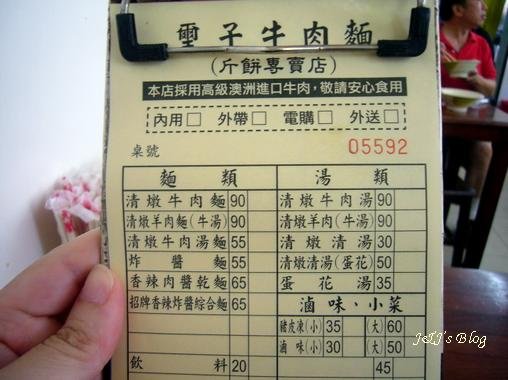 璽子牛肉麵
(斤餅專賣店)
本店採用高級澳洲進口牛肉，敬請安心食用
內用□ 外帶□ 電購□ 外送□
桌號 05592
麵類 湯類
清燉牛肉麵 90 清燉牛肉湯 90
清燉羊肉麵(牛湯) 90 清燉羊肉(牛湯) 90
清燉牛肉湯麵 55 清燉清湯 30
炸醬麵 55 清燉清湯(蛋花) 50
香辣肉醬乾麵 65 蛋花湯 35
招牌香辣炸醬綜合麵 65 滷味、小菜
豬皮凍(小) 35 (大) 60
滷味(小) 30 (大) 50
飲料 20 45
J&J's Blog